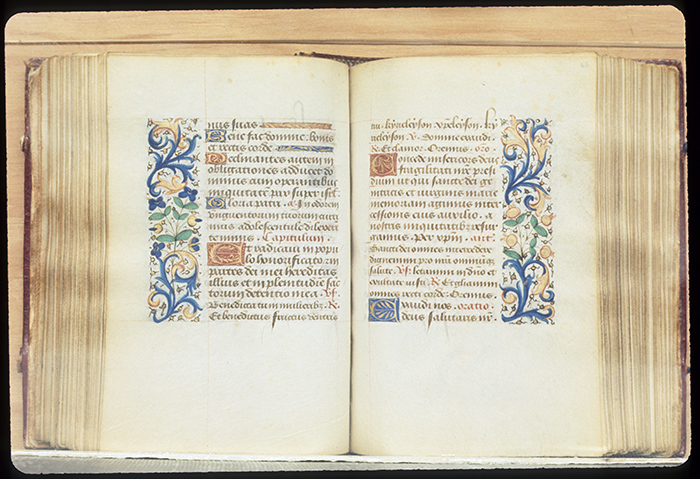 nus suas
Bene fac domine bonis
et rectis corde
Declinantes autem in
obligationes adducet do
minus cum operantibus
iniquitatē pax super isrl.
Gloria patri. a. In odorem
unguentorum tuorum curri
mus adolescentule dilexert
te nimis. Capitulum.
Et radicavi in popu
lo honorificato et in
partes dei mei hereditas
illius et in plenitudine sāc
torum detentio mea. Vs
Benedicta tu in mulierib. R.
Et benedictus fructus ventris
tui. kyrieleyson xpeleyson. ky
rieleyson. V. Domine exaudi.
R. Et clamor. Oremus. oro.
Concede misericors deus
fragilitati nre presi
dium ut qui sancte dei ge
nitricis et virginis marie
memoriam agimus inter
cessionis eius auxilio a
nostris iniquitatibus resur
gamus. Per xpm. ant.
Sancti dei omnes intercedere
dignemini pro nrā omniūq
salute. Vs. letamini in dno et
exultate iusti. R. Et gloriamini
omnes recti corde. Oremus.
Exaudi nos. oratio.
deus salutaris nr.